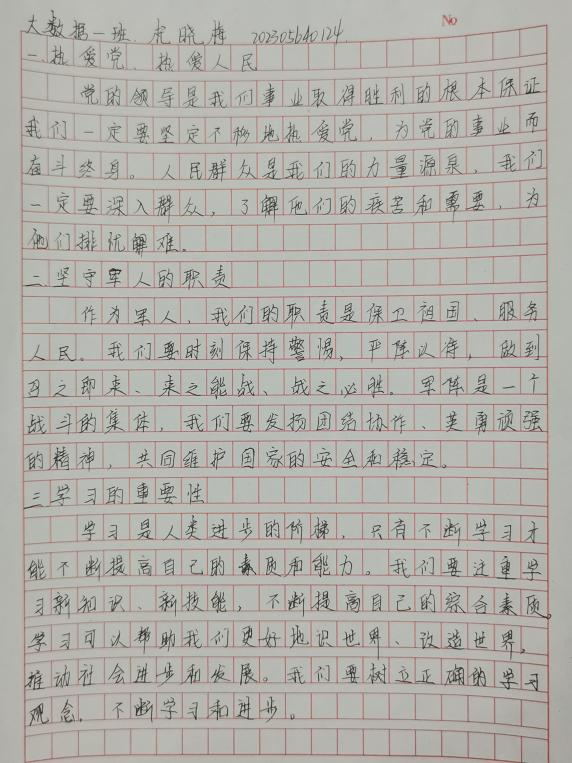 No
大数据一班 晓梅 202305640124
一.热爱党、热爱人民
党的领导是我们事业取得胜利的根本保证
我们一定要坚定不移地热爱党，为党的事业而
奋斗终身。人民群众是我们的力量源泉，我们
一定要深入群众，了解他们的疾苦和需要，为
他们排忧解难。
二.坚守军人的职责
作为军人，我们的职责是保卫祖国、服务
人民。我们要时刻保持警惕，严阵以待，做到
召之即来、来之能战、战之必胜。军阵是一个
战斗的集体，我们要发扬团结协作、英勇顽强
的精神，共同维护国家的安全和稳定。
三学习的重要性
学习是人类进步的阶梯，只有不断学习才
能不断提高自己的素质和能力。我们要注重学
习新知识、新技能，不断提高自己的综合素质。
学习可以帮助我们更好地识世界、改造世界，
推动社会进步和发展。我们要树立正确的学习
观念，不断学习和进步。